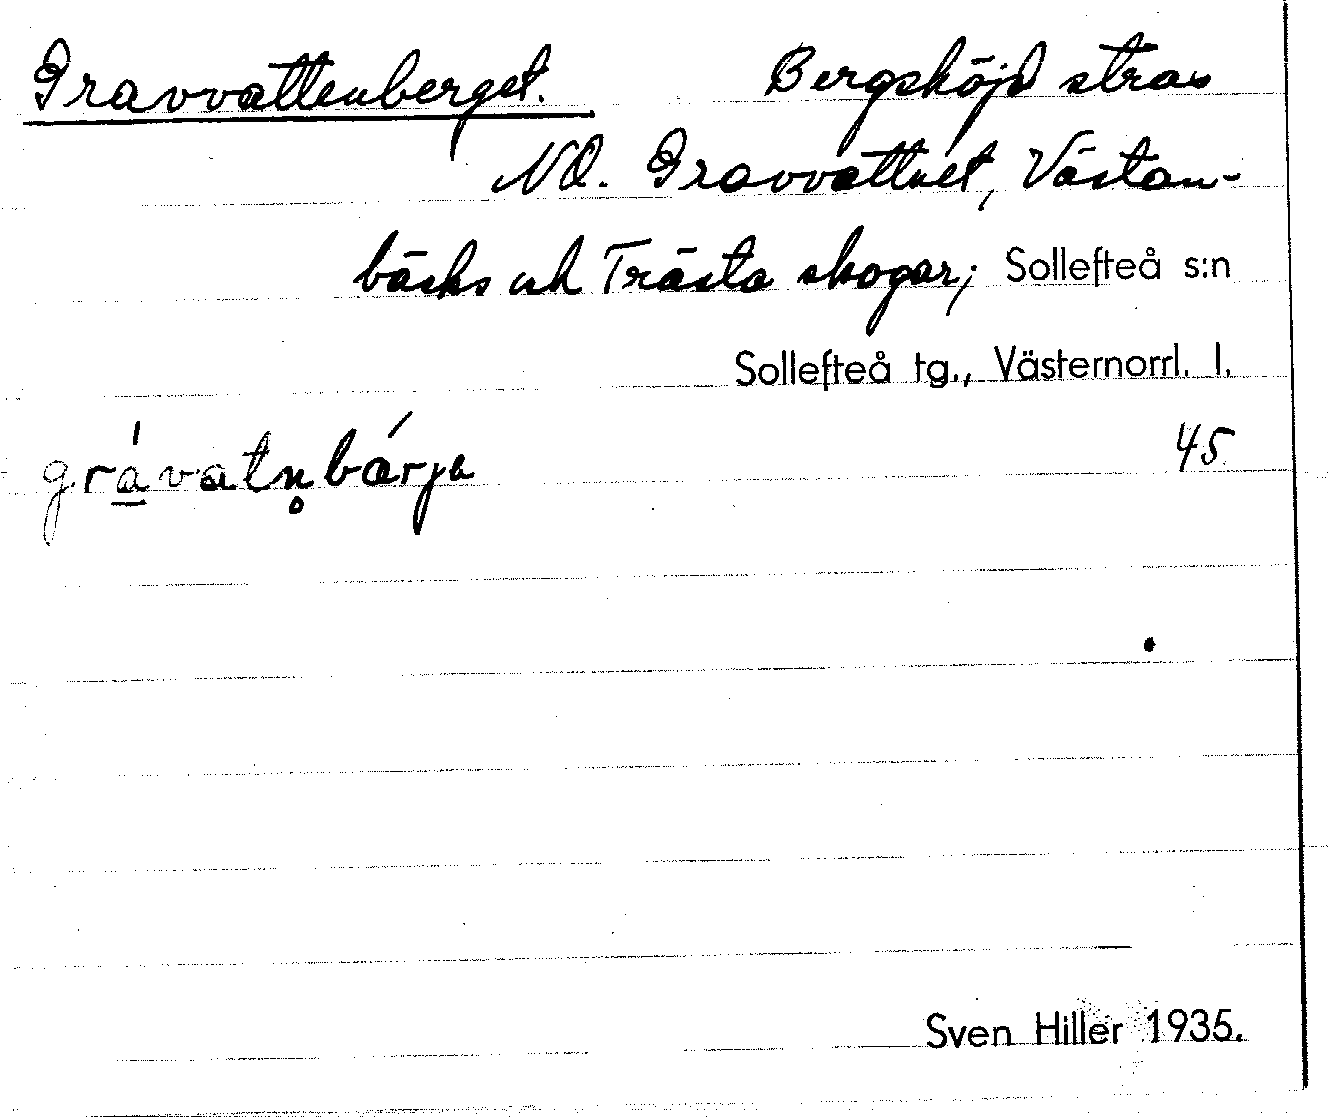 Gravvattenberget. Bergshöjd strax
NO. Gravvattnet, Västan-
bäcks och Trästa skogar; Sollefteå s:n
Sollefteå tg., Västernorrl. l.
grávatn̥bárja 45
Sven Hiller 1935.